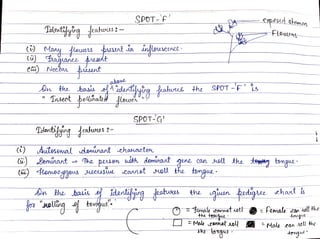 SPOT-'F'
Identifying features :-
exposed stamen
Flowers
(i) Many flowers present in inflorescence.
(ii) Fragrance present
(iii) Nectar present
On the basis of above identifying features the SPOT-'F' is
"Insect pollinated flower"
SPOT-'G'
Identifying features :-
(i) Autosomal dominant character
(ii) Dominant - The person with dominant gene can roll the tongue.
(iii) Homozygous recessive cannot roll the tongue.
On the basis of identifying features the given pedigree chart is
for "rolling of tongue".
= Female cannot roll the tongue
= Female can roll the tongue
= Male cannot roll the tongue
= Male can roll the tongue.